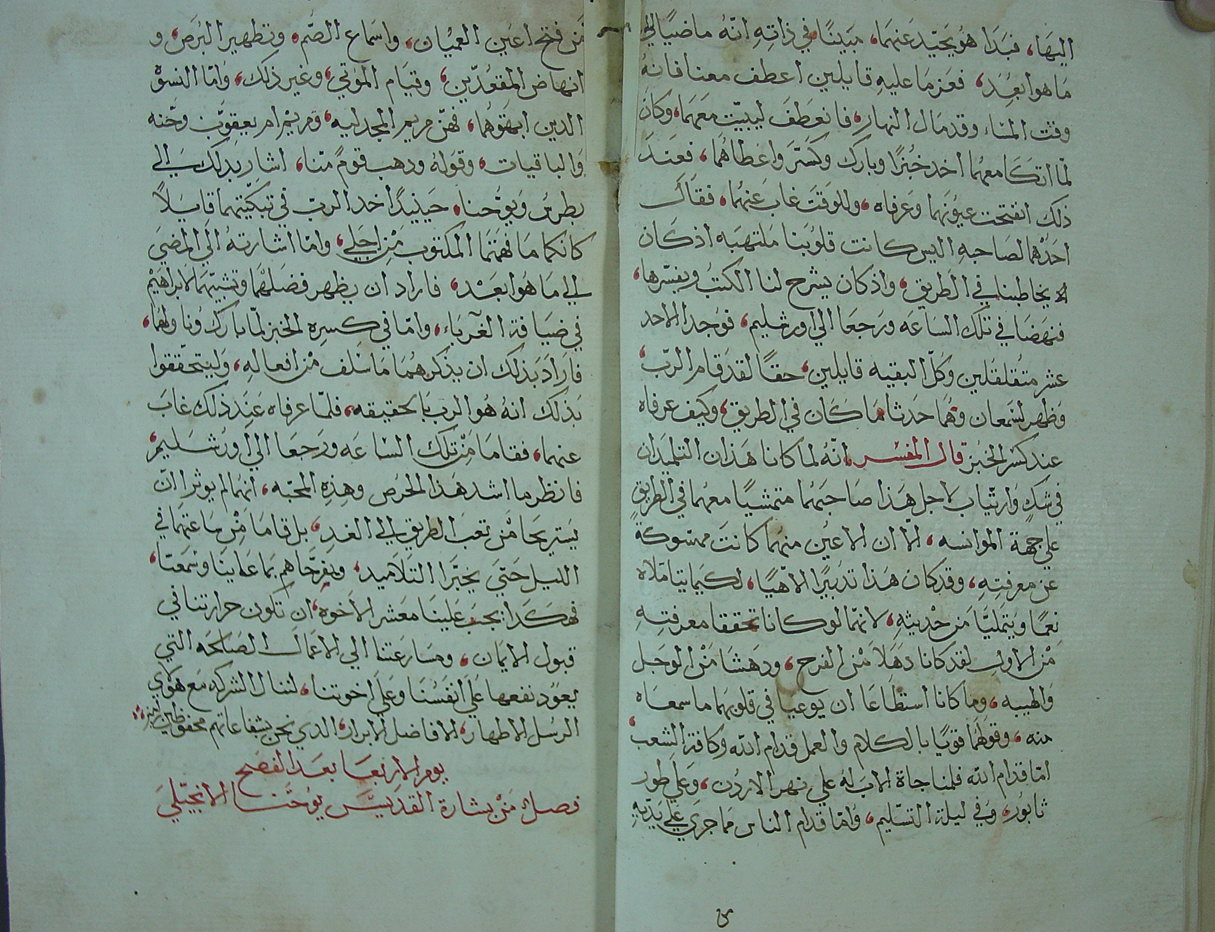 اليها، فبدا هو يحيد عنهما، مبينًا في ذاته انه ماضيًا الي
ما هو ابعد، فعزما عليه قايلين اعطف معنا فانه
وقت المساء وقد مال النهار، فانعطف ليبيت معهما، وكان
لما اتكا معهما اخد خبزًا وبارك وكسر واعطاهما، فعند
ذلك انفتحت عيونهما وعرفاه، وللوقت غاب عنهما، فقال
احدهما لصاحبه اليس كانت قلوبنا ملتهبه اذ كان
يخاطبنا في الطريق، واذ كان يشرح لنا الكتب ويفسرها،
فنهضا في تلك الساعه ورجعا الي اورشليم، فوجدا الاحد
عشر متقلقلين وكل البقيه قايلين، حقًا لقد قام الرب،
وظهر لسمعان وهما حدثا ما كان في الطريق، وكيف عرفاه
عند كسر الخبز قال المفسر، انه لما كانا هذان التلميدان
في شك وارتياب لاجل هذا صاحبهما متمشيًا معهما في الطريق
علي جهة الموانسه، الا ان الاعين منهما كانت ممسوكه
عن معرفته، وقد كان هذا تدبيرًا الاهيًا، لكيما يتاملاه
نعمًا ويتمليا من حديثه، لانهما لو كانا تحققا معرفته
من الاول لقد كانا دهلا من الفرح، ودهشا من الوجل
والهيبه، وما كانا استطاعا ان يوعيا في قلوبهما ما سمعاه
منه، وقولهما قويًا بالكلام والعمل قدام الله وكافة الشعب،
اما قدام الله فلمناجاة الاب له علي نهر الاردن، وعلي طور
ثابور، وفي ليلة التسليم، واما قدام الناس فما جري علي يديه
من فتح اعين العميان، واسماع الصم، وتطهير البرص، و
انهاض المقعدين، وقيام الموتي، وغير ذلك، واما النسوة
الدين ابهتوهما، فهن مريم المجدليه، ومريم ام يعقوب وحنه
والباقيات، وقوله ودهب قوم منا، اشار بدلك الي
بطرس ويوحنا، حينيدًا اخد الرب في تبكيتهما قايلاً
كانكما ما فهمتما المكتوب من اجلي، واما اشارته الي المضي
الي ما هو ابعد، فاراد ان يظهر فضلهما وتشبيههما لابراهيم
في ضيافة الغرباء، واما في كسره الخبز لما بارك وناولهما،
فاراد بذلك ان يذكرهما ما سلف من افعاله، وليتحققوا
بذلك انه هو الرب بالحقيقه، فلما عرفاه عند ذلك غاب
عنهما، فقاما من تلك الساعه ورجعا الي اورشليم،
فانظر ما اشد هذا الحرص وهذه المحبه، انهما لم يوثرا ان
يستريحا من تعب الطريق الي الغد، بل قاما من ساعتهما في
الليل حتي يخبرا التلاميد، ويفرحاهم بما عاينا وسمعتا،
فهكدا يجب علينا معشر الاخوه، ان تكون حرارتنا في
قبول الايمان، ومسارعتنا الي الاعمال الصالحه التي
يعود نفعها علي انفسنا وعلي اخوتنا، لننال الشركه مع هولاي
الرسل الاطهار، الافاضل الابرار، الدي نحن بشفاعاتهم محفوظين امين
يوم الاربعا بعد الفصح
فصل من بشارة القديس يوحنا الانجيلي